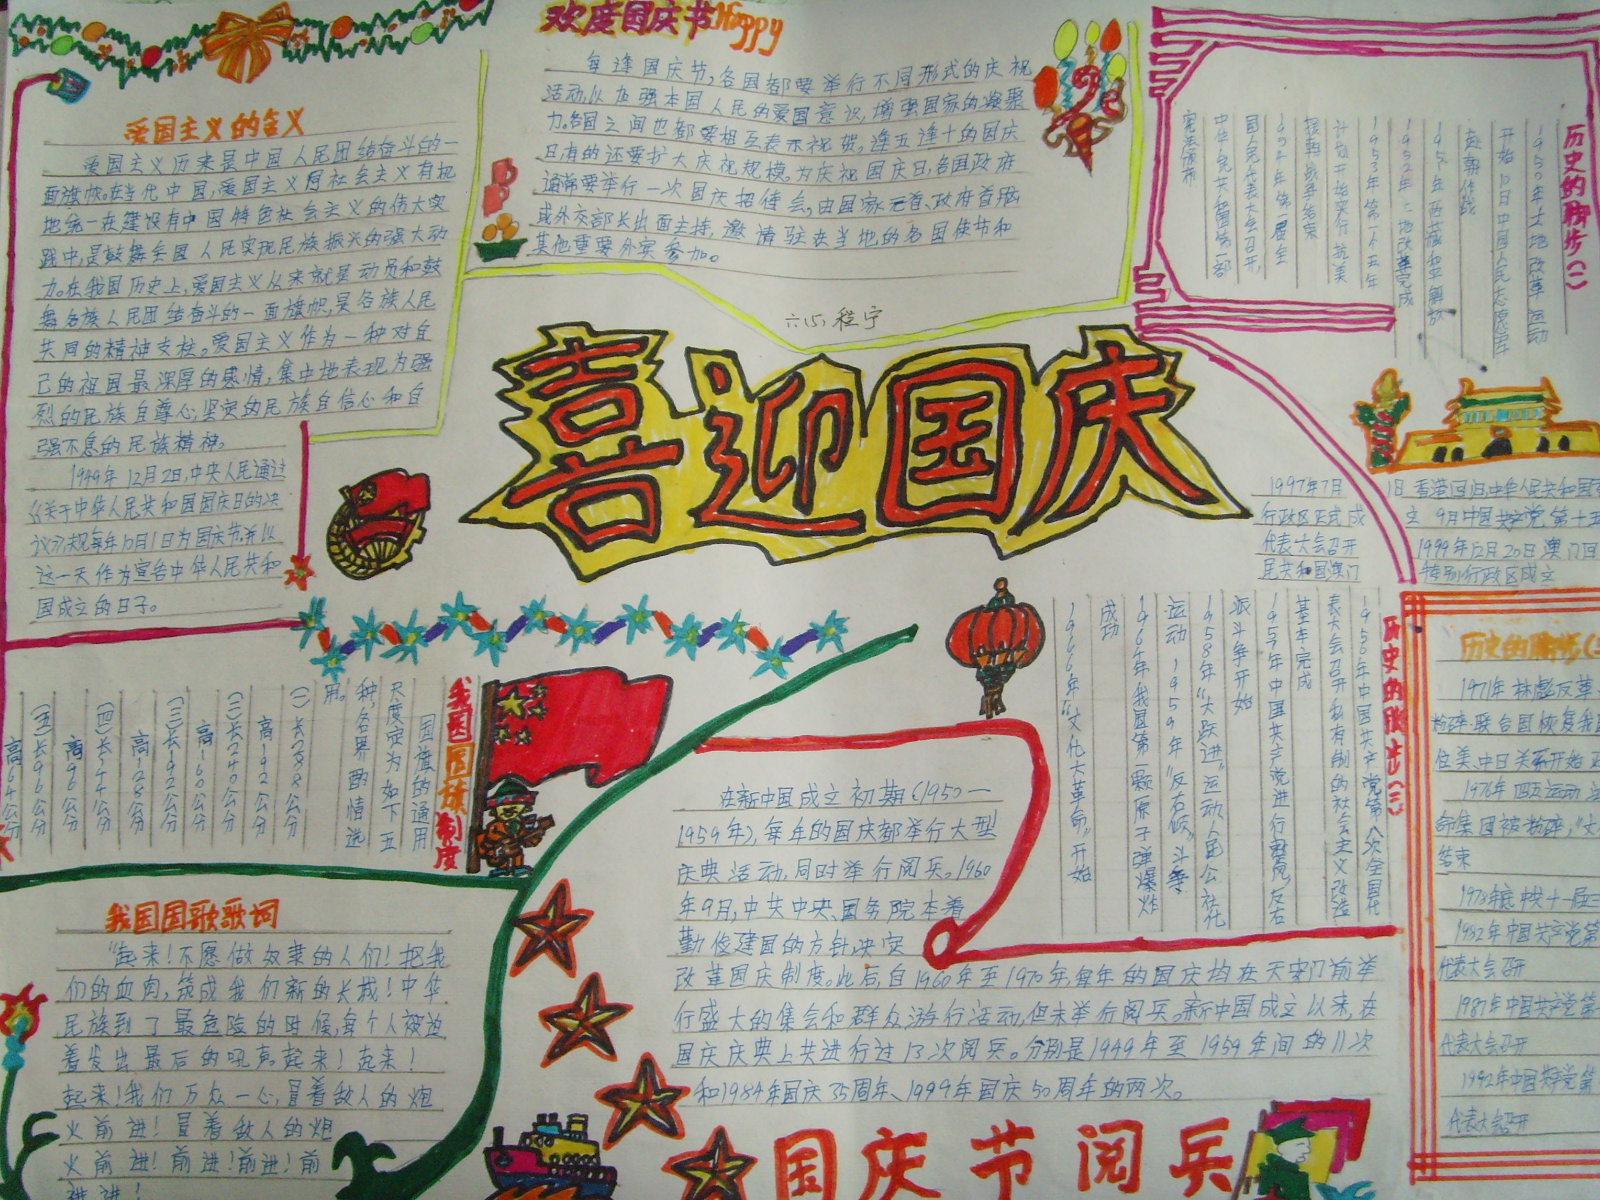 欢度国庆节Happy
每逢国庆节,各国都要举行不同形式的庆祝
活动,以加强本国人民的爱国意识,增强国家的凝聚
力。各国之间也都要相互表示祝贺,逢五逢十的国庆
日,有的还要扩大庆祝规模。为庆祝国庆日,各国政府
通常要举行一次国庆招待会,由国家元首、政府首脑
或外交部长出面主持,邀请驻在当地的各国使节和
其他重要外宾参加。
爱国主义的含义
爱国主义历来是中国人民团结奋斗的一
面旗帜。在当代中国,爱国主义同社会主义有机
地统一在建设有中国特色社会主义的伟大实
践中,是鼓舞全国人民实现民族振兴的强大动
力。在我国历史上,爱国主义从来就是动员和鼓
舞各族人民团结奋斗的一面旗帜,是各族人民
共同的精神支柱。爱国主义作为一种对自
己的祖国最深厚的感情,集中地表现为强
烈的民族自尊心,坚定的民族自信心和自
强不息的民族精神。
1949年12月2日,中央人民通过
《关于中华人民共和国国庆日的决
议》,规每年10月1日为国庆节,并以
这一天作为宣告中华人民共和
国成立的日子。
六(5)程宁
喜迎国庆
历史的脚步(一)
1950年土地改革运动
开始10日中国人民志愿军
赴朝作战
1951年西藏和平解放
1952年土地改革完成
1953年第一个五年
计划开始实行 抗美
援朝战争结束
1954年第一届全
国人民代表大会召开,
中华人民共和国第一部
宪法颁布
1997年7月1日香港回归中华人民共和国
行政区正式成立 9月中国共产党第十五
代表大会召开 1999年12月20日澳门回
民共和国澳门特别行政区成立
历史的脚步(二)
1956年中国共产党第八次全国代
表大会召开私有制的社会主义改造
基本完成
1957年中国共产党进行整风、反右
派斗争开始
1958年“大跃进”运动、人民公社化
运动 1959年“反右倾”斗争
1964年我国第一颗原子弹爆炸
成功
1966年“文化大革命”开始
历史的脚步(三
1971年林彪反革
粉碎 联合国恢复我国
位美、中日关系开始正
1976年四五运动
命集团被粉碎,“文
结束
1978年底中共十一届三
1982年中国共产党第
代表大会召开
1987年中国共产党第
代表大会召开
1992年中国共产党第
代表大会召开
我国国旗制度
国旗的通用
尺度定为如下五
种,各界酌情选
用。
(一)长288公分
高192公分
(二)长240公分
高160公分
(三)长192公分
高128公分
(四)长144公分
高96公分
(五)长96公分
高64公分
我国国歌歌词
“起来!不愿做奴隶的人们!把我
们的血肉,筑成我们新的长城!中华
民族到了最危险的时候,每个人被迫
着发出最后的吼声。起来!起来!
起来!我们万众一心,冒着敌人的炮
火前进!冒着敌人的炮
火前进!前进!前进!前
进进!
在新中国成立初期(1950一
1959年),每年的国庆都举行大型
庆典活动,同时举行阅兵。1960
年9月,中共中央、国务院本着
勤俭建国的方针,决定
改革国庆制度。此后,自1960年至1970年,每年的国庆均在天安门前举
行盛大的集会和群众游行活动,但未举行阅兵。新中国成立以来,在
国庆庆典上共进行过13次阅兵。分别是1949年至1959年间的11次
和1984年国庆35周年、1999年国庆50周年的两次。
国庆节阅兵